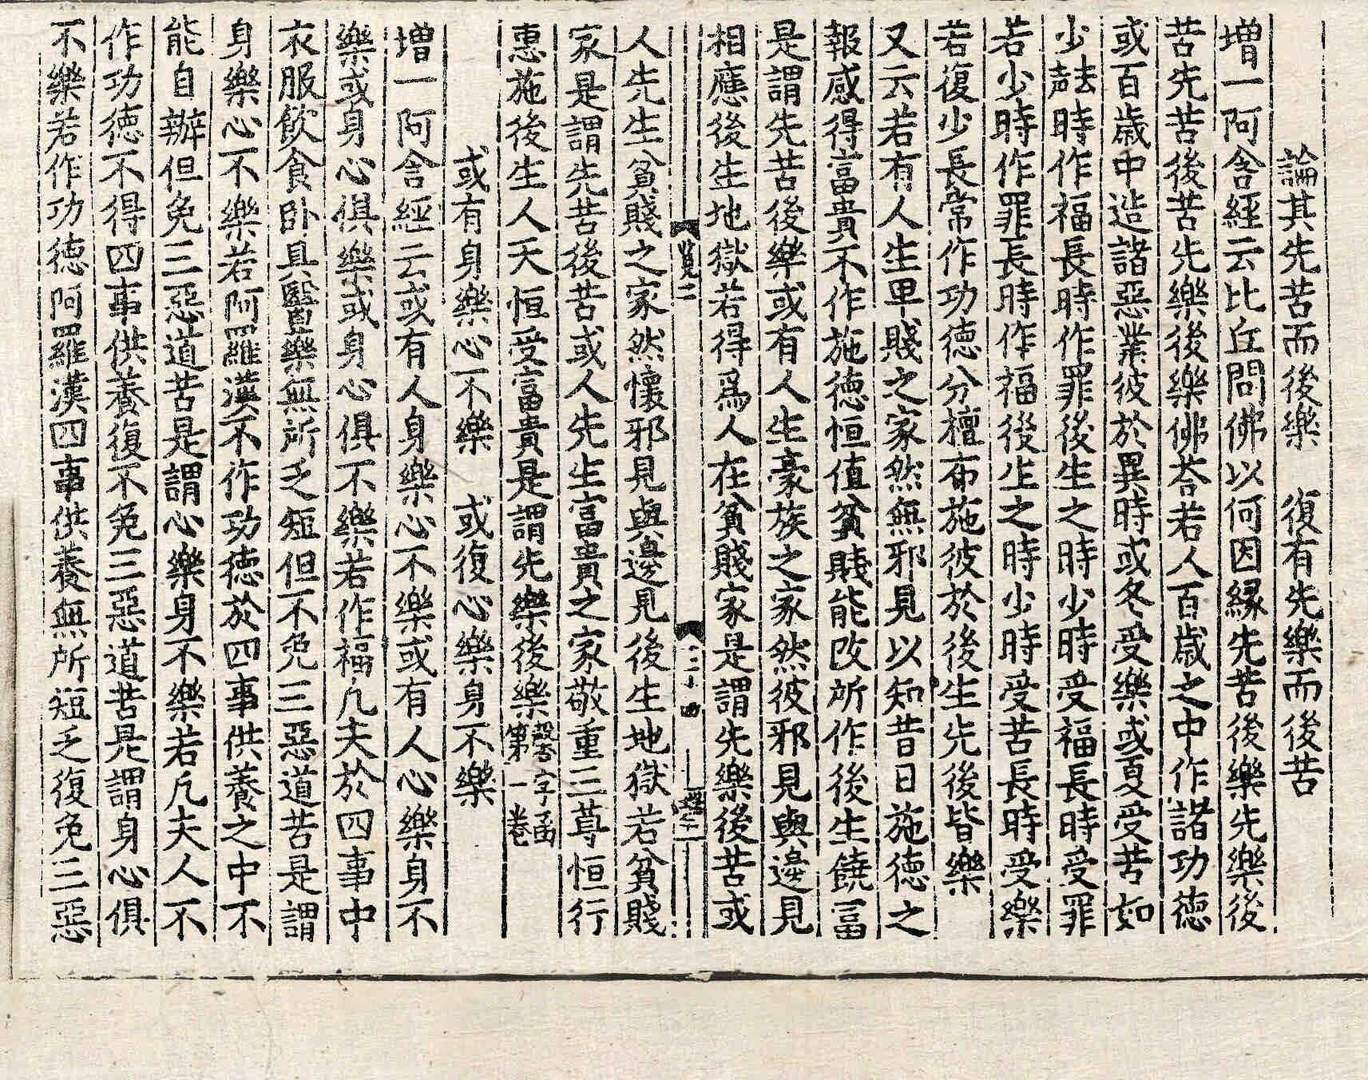 論其先苦而後樂　復有先樂而後苦
增一阿含經云比丘問佛以何因緣先苦後樂先樂後
苦先苦後苦先樂後樂佛荅若人百歲之中作諸功德
或百歲中造諸惡業彼於異時或冬受樂或夏受苦如
少時作福長時作罪後生之時少時受福長時受罪
若少時作罪長時作福後生之時少時受苦長時受樂
若復少長常作功德分檀布施彼於後生先後皆樂
又云若有人生卑賤之家然無邪見以知昔日施德之
報感得富貴不作施德恒值貧賤能改所作後生饒富
是謂先苦後樂或有人生豪族之家然彼邪見與邊見
相應後生地獄若得爲人在貧賤家是謂先樂後苦或
覽二　二十四
人先生貧賤之家然懷邪見與邊見後生地獄若貧賤
家是謂先苦後苦或人先生富貴之家敬重三尊恒行
惠施後生人天恒受富貴是謂先樂後樂設字函第一卷
或有身樂心不樂　或復心樂身不樂
增一阿含經云或有人身樂心不樂或有人心樂身不
樂或身心俱樂或身心俱不樂若作福凡夫於四事中
衣服飲食卧具醫藥無所乏短但不免三惡道苦是謂
身樂心不樂若阿羅漢不作功德於四事供養之中不
能自辦但免三惡道苦是謂心樂身不樂若凡夫人不
作功德不得四事供養復不免三惡道苦是謂身心俱
不樂若作功德阿羅漢四事供養無所短乏復免三惡